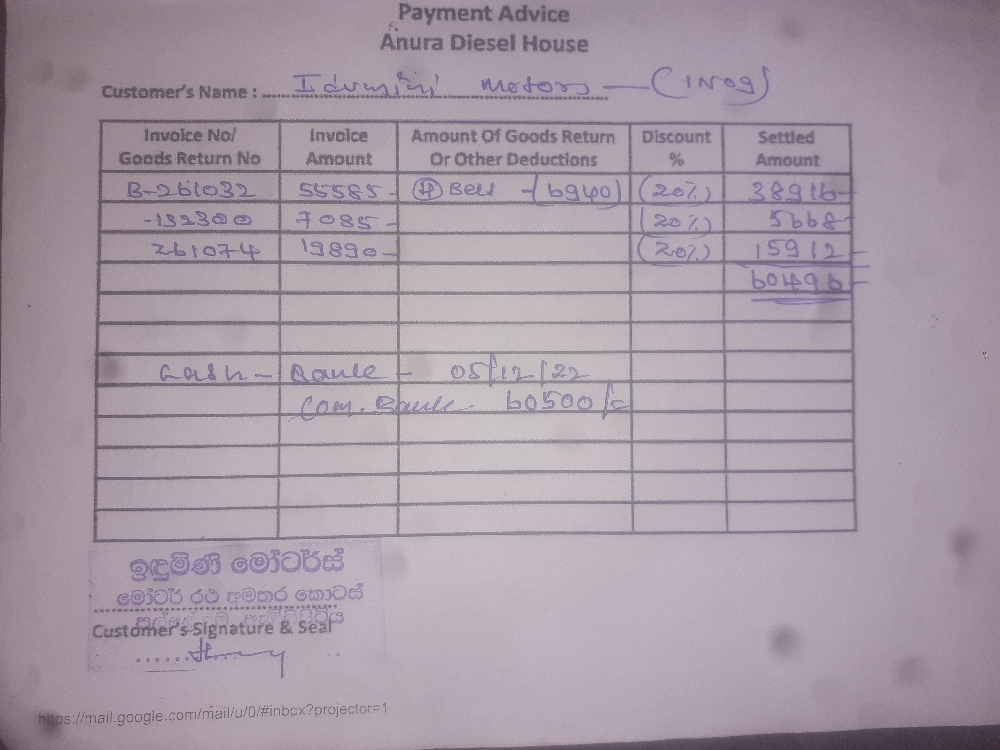 Payment Advice
Anura Diesel House
Customer's Name : Idumini Motors — (IN09)
Invoice No/ Goods Return No Invoice Amount Amount Of Goods Return Or Other Deductions Discount % Settled Amount
B-261032 55585- Bell -(6940) (20%) 38916-
-132300 7085- (20%) 5668-
261074 19890- (20%) 15912-
60496-
Cash - Bank - 05/12/22
Com. Bank. 60500/-
ඉඳුමිණි මෝටර්ස්
මෝටර් රථ අමතර කොටස්
Customer's Signature & Seal
https://mail.google.com/mail/u/0/#inbox?projector=1